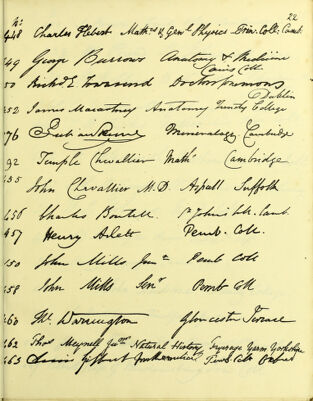 No. 22
448 Charles Hebert Maths & Genl Physics Trin. Coll. Camb
449 George Burrows Anatomy & Medicine
Caius Coll
50 Richd Townsend Doctor
Dublin
452 James Macartney Anatomy Trinity College
476 Mineralogy Cambridge
492 Temple Chevallier Maths Cambridge
455
John Chevallier M.D. Aspall Suffolk
456 Charles Boutell St Johns Coll. Camb
457 Henry Arlett Pemb. Coll.
450 John Mills Junr Pemb Coll
458 John Mills Senr Pemb Coll
460 Warrington Gloucester Terrace
462 Thos Meynell Junr Natural History Fryerage Yarm Yorkshire
463 Pemb. Coll. Oxford